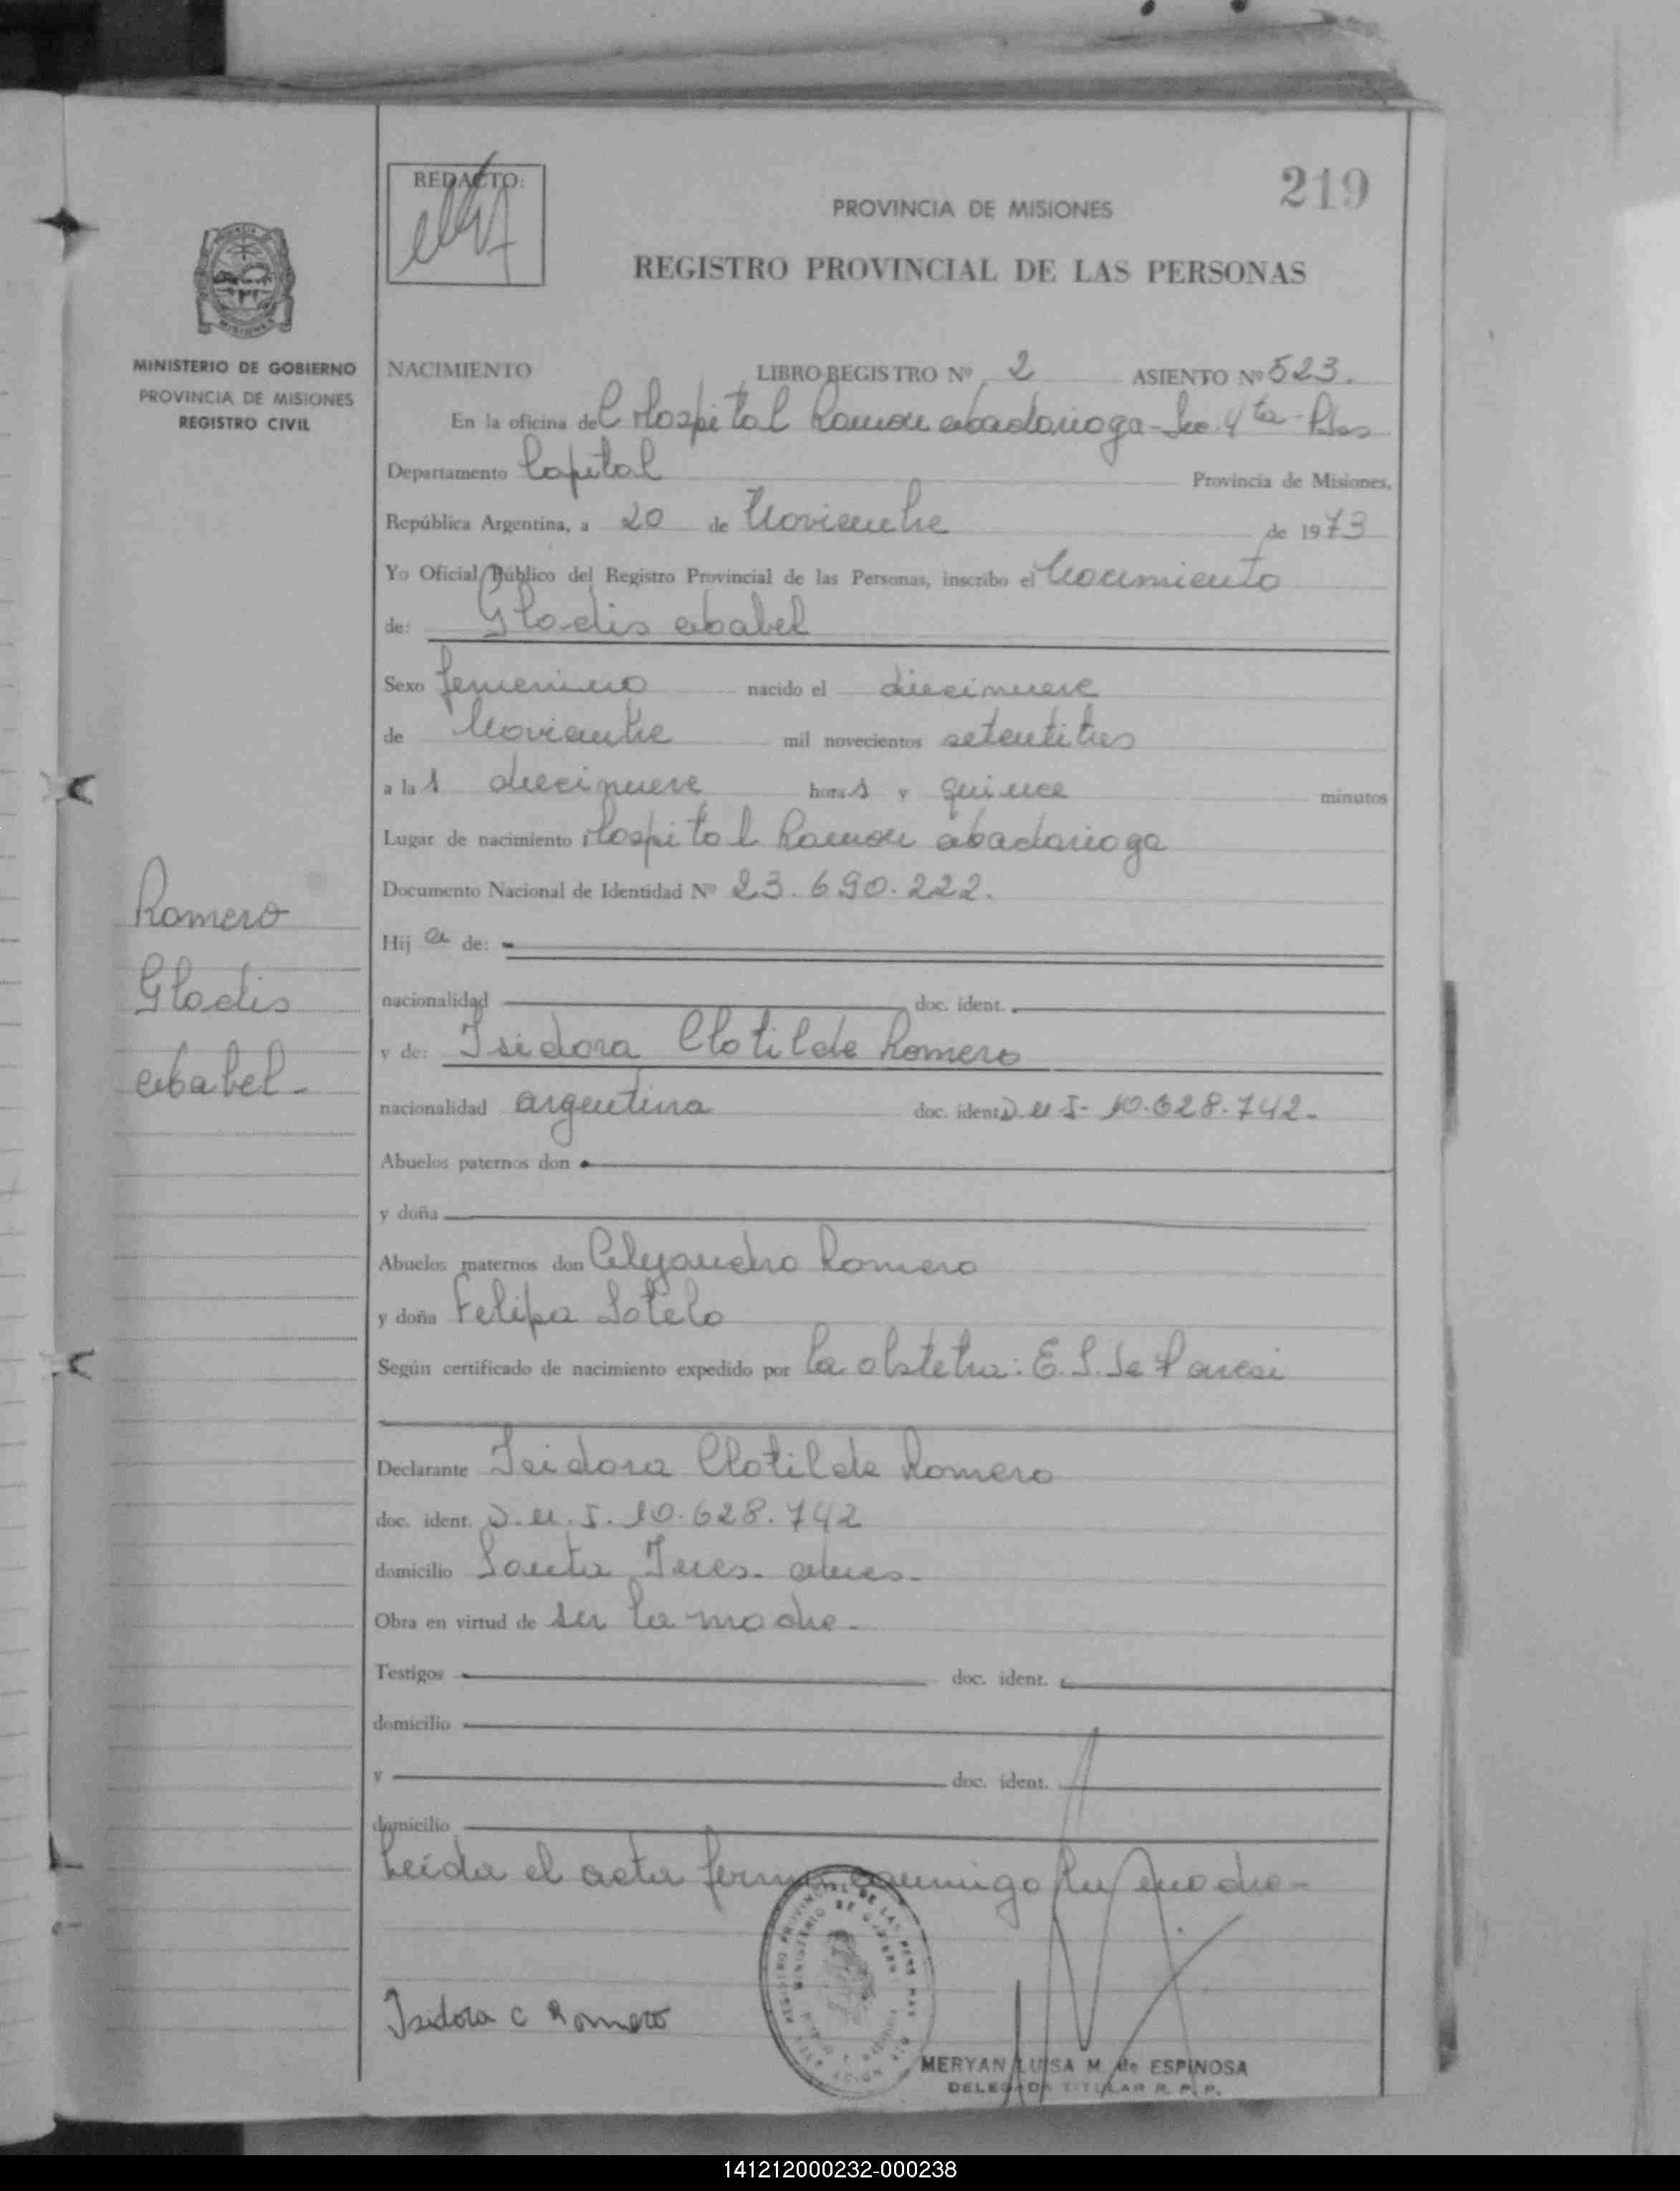 REDACTO:
219
PROVINCIA DE MISIONES
REGISTRO PROVINCIAL DE LAS PERSONAS
MINISTERIO DE GOBIERNO
PROVINCIA DE MISIONES
REGISTRO CIVIL
NACIMIENTO LIBRO REGISTRO Nº 2 ASIENTO Nº 523.
En la oficina del Hospital Ramon Abadarioga - Sec. 4ta - Pdas
Departamento Capital Provincia de Misiones,
República Argentina, a 20 de Noviembre de 1973
Yo Oficial Público del Registro Provincial de las Personas, inscribo el Nacimiento
de: Gladis Ababel
Sexo femenino nacido el diecinueve
de Noviembre mil novecientos setentitres
a las diecinueve horas y quince minutos
Lugar de nacimiento Hospital Ramon Abadarioga
Documento Nacional de Identidad Nº 23.690.222.
Romero
Gladis
Ababel -
Hija de:
nacionalidad doc. ident.
y de: Isidora Clotilde Romero
nacionalidad argentina doc. ident D.N.I- 10.628.742-
Abuelos paternos don
y doña
Abuelos maternos don Alejandro Romero
y doña Felipa Sotelo
Según certificado de nacimiento expedido por la obstetra: E. S. de
Declarante Isidora Clotilde Romero
doc. ident. D.N.I. 10.628.742
domicilio Santa Ines -
Obra en virtud de ser la madre -
Testigos doc. ident.
domicilio
y doc. ident.
domicilio
Leida el acta firma conmigo la madre -
REGISTRO PROVINCIAL DE LAS PERSONAS
MINISTERIO DE GOBIERNO
Isidora C Romero
MERYAN LUISA M. de ESPINOSA
DELEGADA TITULAR R. P. P.
141212000232-000238